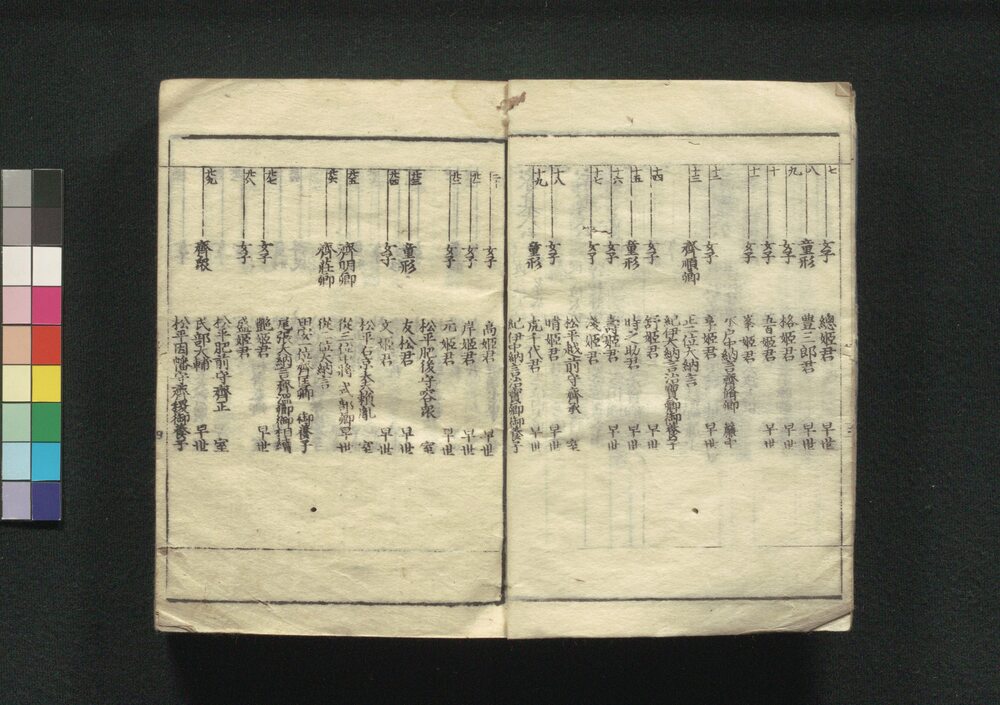 七 女子 總姫君 早世
八 童形 豊三郎君 早世
九 女子 格姫君 早世
十 女子 五百姫君 早世
十一 女子 峯姫君
水戸中納言齊脩卿 簾中
十二 女子 亨姫君 早世
十三 齊順卿 正二位大納言
紀伊大納言治寶卿御養子
十四 女子 舒姫君 早世
十五 童形 時之助君 早世
十六 女子 壽姫君 早世
十七 女子 淺姫君
松平越前守齊承 室
十八 女子 晴姫君 早世
十九 童形 虎千代君 早世
紀伊中納言治寶卿御養子
二十 女子 高姫君 早世
廿一 女子 岸姫君 早世
廿二 女子 元姫君
松平肥後守容衆 室
廿三 童形 友松君 早世
廿四 女子 文姫君 早世
松平右京大夫頼胤 室
廿五 齊明卿 從三位中將式部卿 早世
廿六 齊荘卿 從二位大納言
田安一位齊匡卿 御養子
尾張大納言齊温卿御相續
廿七 女子 艶姫君 早世
廿八 女子 盛姫君
松平肥前守齊正 室
廿九 齊衆 民部大輔 早世
松平因幡守齊稷御養子